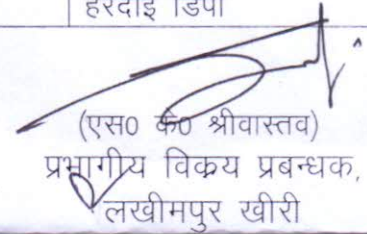 हरदोई डिपो
(एस0 के0 श्रीवास्तव)
प्रभागीय विक्रय प्रबन्धक,
लखीमपुर खीरी